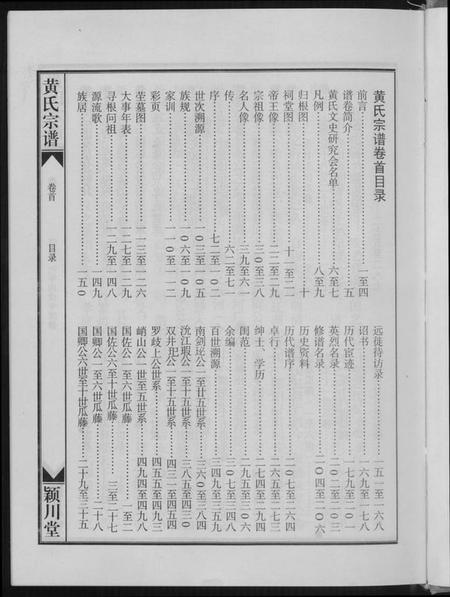 黄氏宗谱卷首目录
前言……一至四
谱卷简介……五
黄氏文史研究会名单……六至七
凡例……八至九
归根图……十
祠堂图……十一至二一
帝王像……二二至二九
宗祖像……三〇至三八
名人像……三九至六一
传……六二至七一
序……七二至一〇二
世次溯源……一〇三至一〇五
族规……一〇六至一〇九
家训……一一〇至一一二
彩页
茔墓图……一一三至一二六
大事年表……一二七至一二九
寻根问祖……一二九至一四八
源流歌……一四九
族居……一五〇
远徒待访录……一五一至一六八
诏书……一六九至一七八
历代宦迹……一七九至二〇一
英烈名录……二〇二至二〇三
修谱名录……二〇四至二〇六
历史资料
历代谱序……二〇七至二六四
卓行……二六五至二七三
绅士、学历……二七四至二九四
闺范……二九五至三〇六
余编……三〇七至三四八
百世溯源……三四九至三五九
南剑㻌公一至廿五世系……三六〇至三八四
浇江瑕公一至十五世系……三八五至四三〇
双井玘公一至十五世系……四三一至四五四
罗歧上公世系……四五五至四九三
峭山公一世至五世系……四九四至四九八
国佐公一至六世瓜藤……一至二
国佐公六至十世瓜藤……三至二七
国卿公一至六世瓜藤……二十八
国卿公六世至十世瓜藤……二十九至三十五
黄氏宗谱
卷首
目录
颍川堂